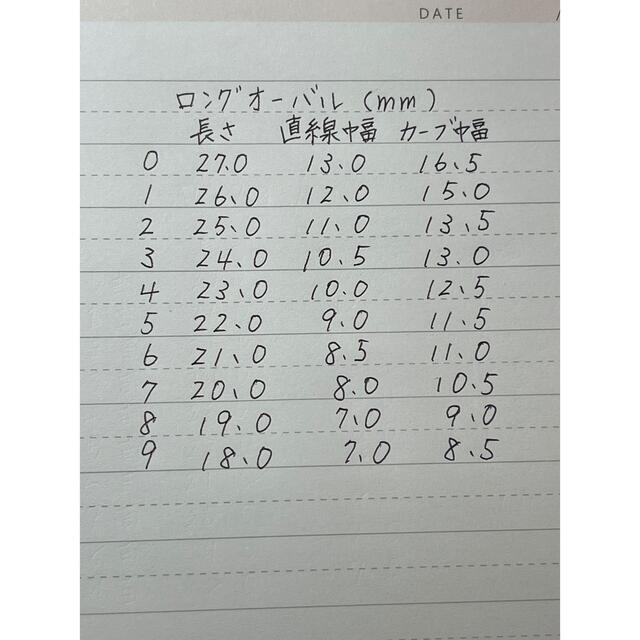 DATE /
ロングオーバル (mm)
長さ 直線巾幅 カーブ巾幅
0 27.0 13.0 16.5
1 26.0 12.0 15.0
2 25.0 11.0 13.5
3 24.0 10.5 13.0
4 23.0 10.0 12.5
5 22.0 9.0 11.5
6 21.0 8.5 11.0
7 20.0 8.0 10.5
8 19.0 7.0 9.0
9 18.0 7.0 8.5